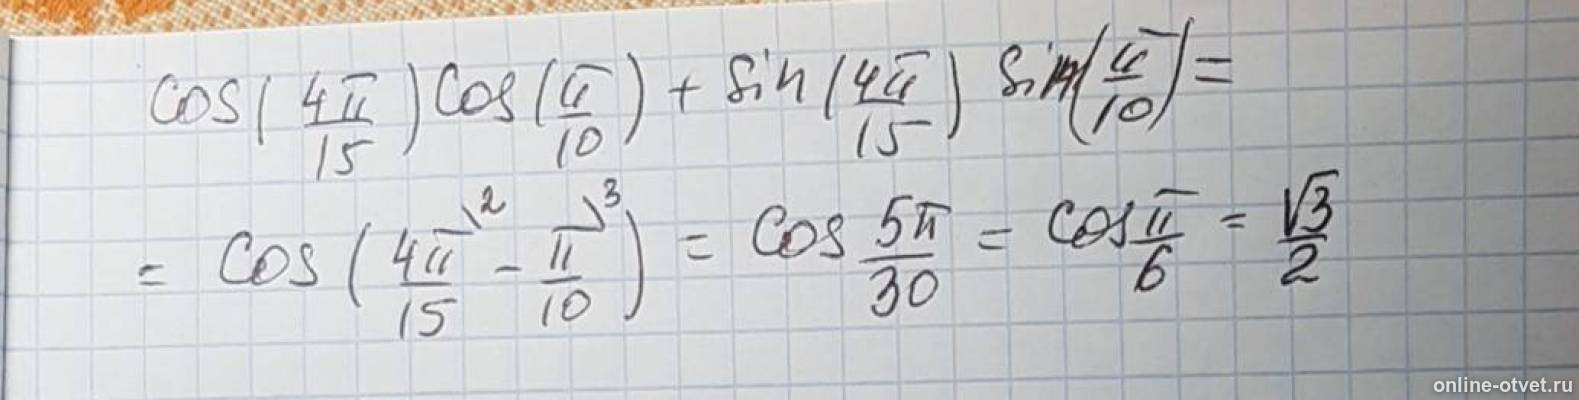 cos(4π/15)cos(π/10) + sin(4π/15) sin(π/10) =
= cos(4π/15 \2 - π/10 \3) = cos 5π/30 = cos π/6 = √3/2
online-otvet.ru